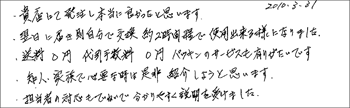 2010.3.31
・貴店にて発注し本当に良かったと思います。
・翌日に届き到自分で交換 約2時間程で使用出来る様になりました。
・送料0円 代引手数料0円 パッキンのサービスも有りがたいです
・知人、家族で必要な時は是非紹介しようと思います。
・担当者の対応もていねいで分かりやすく説明を受けました。